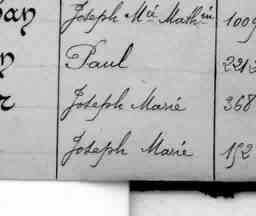 ay Joseph Mie Mathin 1009
n Paul 2212
r Joseph Marie 368
Joseph Marie 152